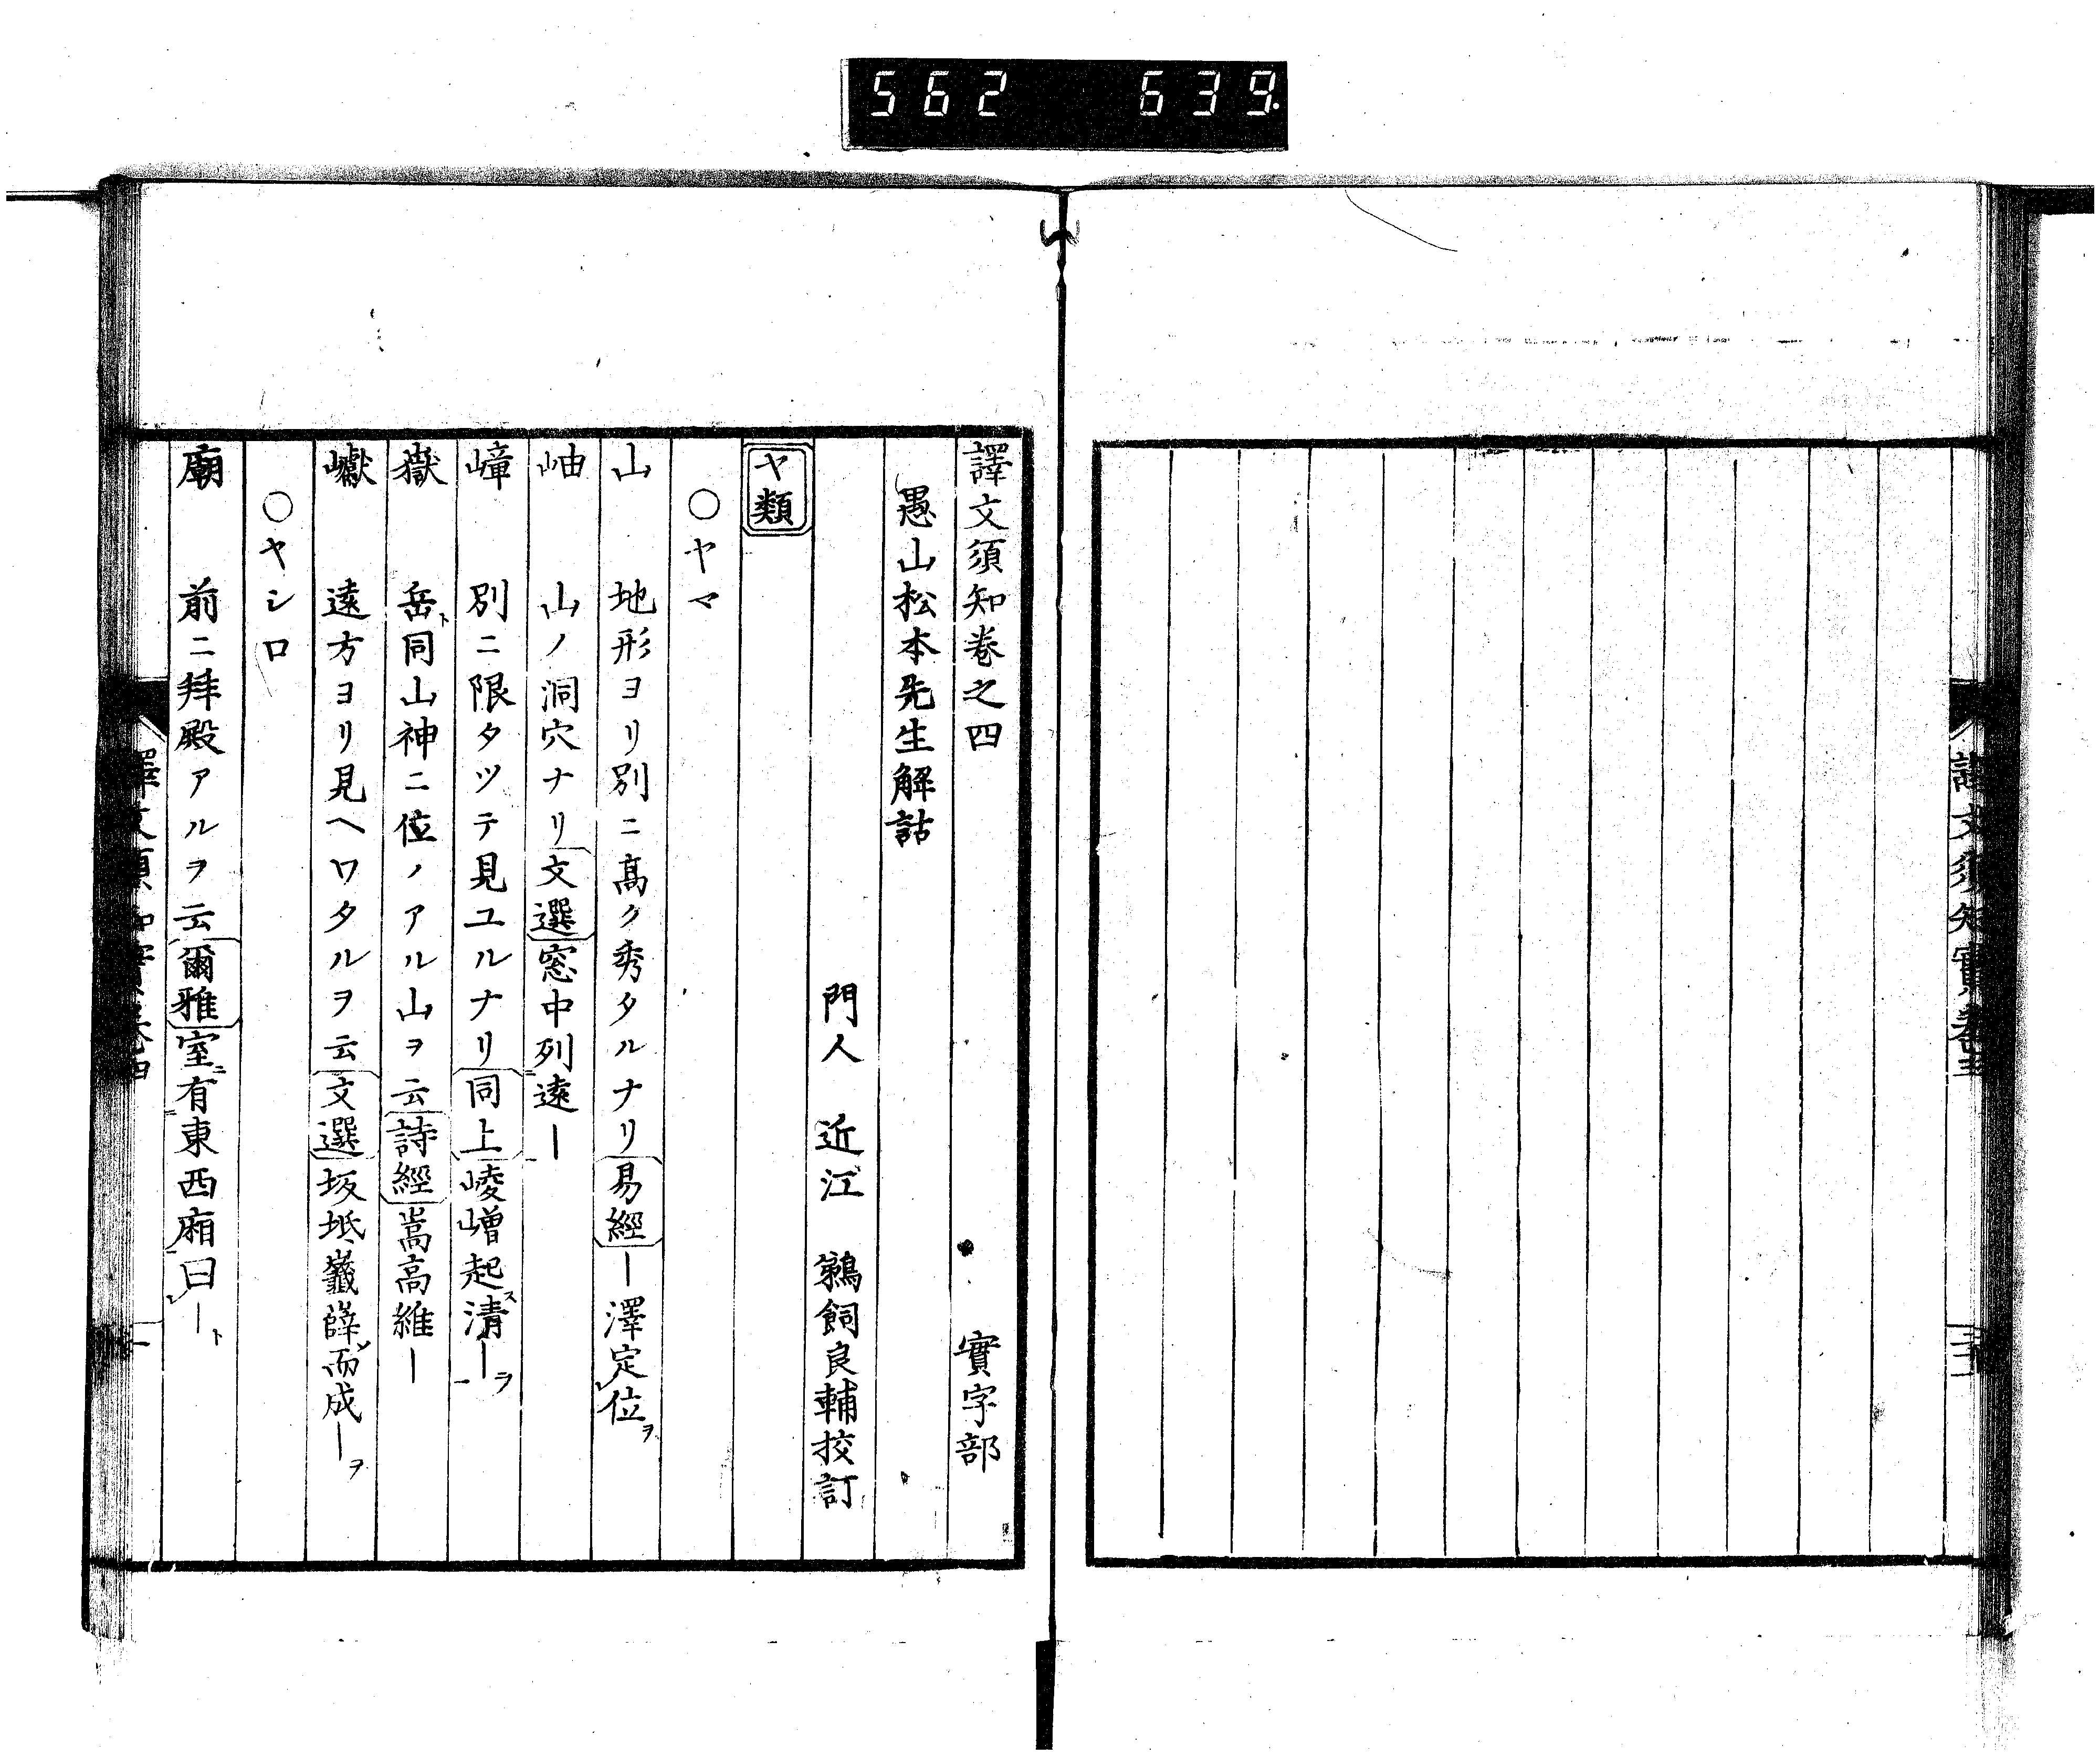 562 639
譯文須知實卷
譯文須知卷之四 實字部
愚山松本先生解詁
門人 近江 鵜飼良輔挍訂
ヤ類
○ヤマ
山 地形ヨリ別ニ高ク秀タルナリ易經―澤定位ヲ
岫 山ノ洞穴ナリ文選窓中列遠―
嶂 別ニ限タツテ見ユルナリ同上崚嶒起清―
嶽 岳ト同山神ニ位ノアル山ヲ云詩經嵩高維―
巘 遠方ヨリ見ヘワタルヲ云文選坂坻巀嶭而成―ヲ
○ヤシロ
廟 前ニ拜殿アルヲ云爾雅室有東西廂曰―ト
譯文須知實卷四 一